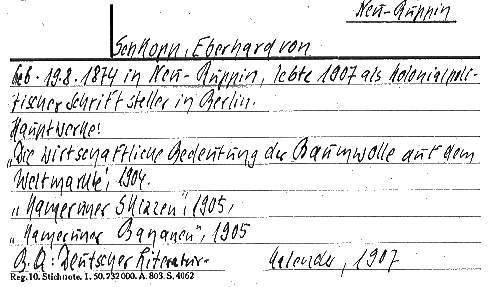 Neu-Ruppin
Senkopn, Eberhard von
Geb. 19.8.1874 in Neu-Ruppin, lebte 1907 als Kolonialpoli-
tischer Schriftsteller in Berlin.
Hauptwerke:
„Die wirtschaftliche Bedeutung der Baumwolle auf dem
Weltmarkte", 1904.
„Kameruner Skizzen", 1905,
„Kameruner Bananen", 1905
B.Q: Deutscher Literatur- Kalender, 1907
Reg. 10. Stichnote. 1. 50. 232 000. A. 803. S. 4062